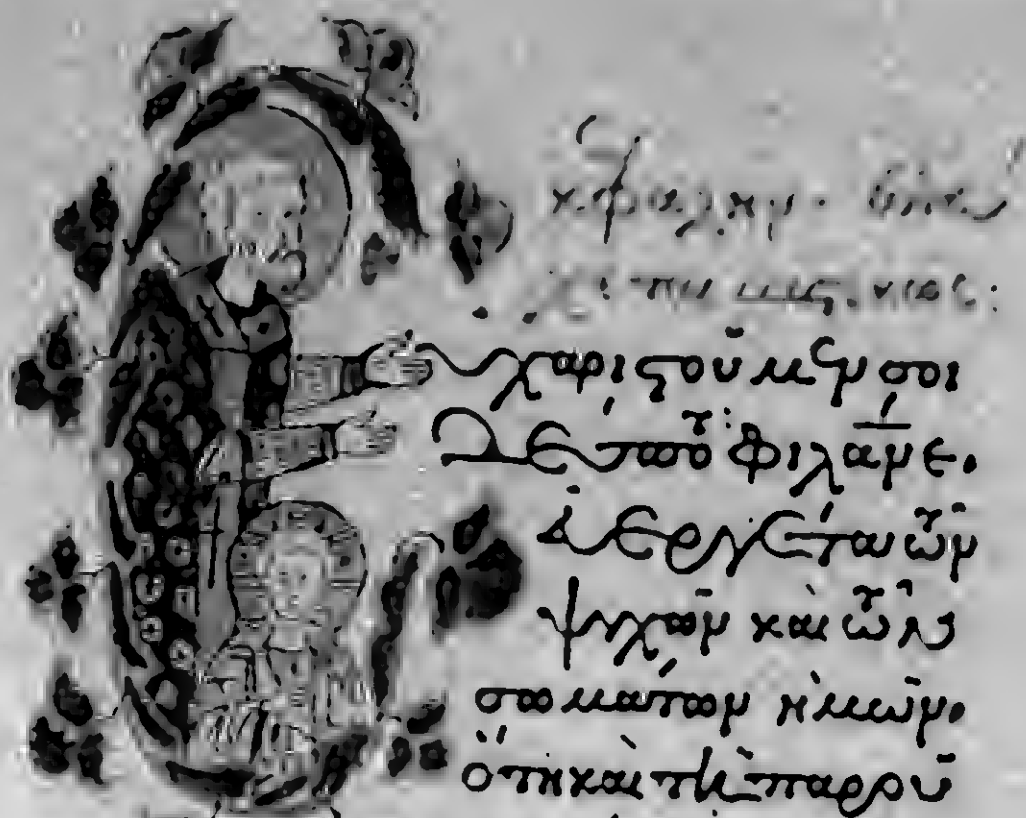 Εὐχαριστοῦμέν σοι
Δέσποτα φιλάνε.
εὐεργέτα τῶν
ψυχῶν καὶ τῶν
σωμάτων ἡμῶν.
ὅτι καὶ τῇ παρού